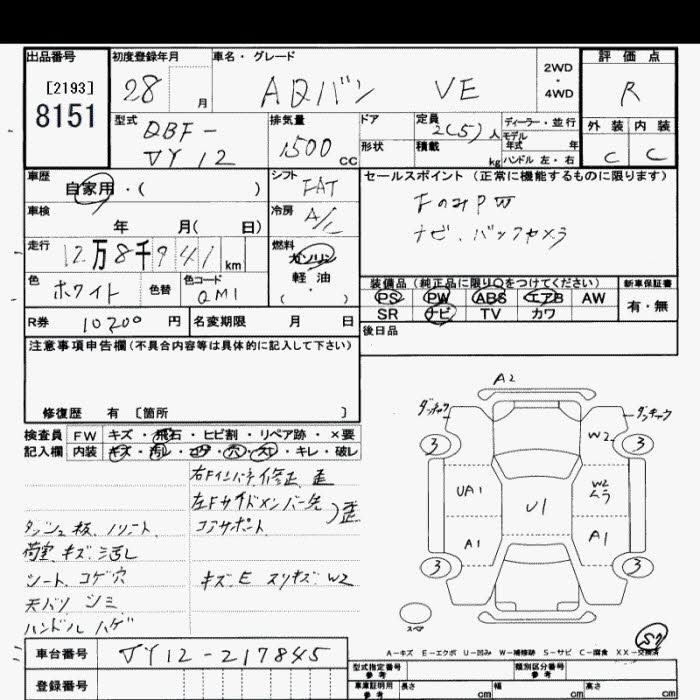 出品番号
[2193]
8151
初度登録年月
28 月
車名・グレード
ADバン VE
2WD
・
4WD
評価点
R
型式
DBF-
VY12
排気量
1500 cc
ドア
形状
定員
2(5)人
積載
kg
ディーラー・並行
モデル
年式 年
ハンドル 左・右
外装 内装
C C
車歴
自家用・( )
シフト
FAT
セールスポイント (正常に機能するものに限ります)
FのみPW
ナビ、バックカメラ
車検
年 月( 日)
冷房
A/C
走行
12万8千941 km
燃料
ガソリン
軽油
( )
色
ホワイト
色替
色コード
QM1
装備品 (純正品に限り○をつけてください)
PS PW ABS エアB AW
SR ナビ TV カワ
新車保証書
有・無
R券 10200 円
名変期限 月 日
後日品
注意事項申告欄(不具合内容等は具体的に記入して下さい)
修復歴 有 〔箇所 〕
検査員 FW キズ・飛石・ヒビ割・リペア跡・×要
記入欄 内装 キズ・汚レ・コゲ・穴・スレ・キレ・破レ
右Fインパネ修正、歪
左Fサイドメンバー先
コアサポート )歪
ダッシュ板、ノリシート
荷室キズ汚し
シート、コゲ穴
キズ、E スリキズ W2
天バリ シミ
ハンドル ハゲ
A2
ダンチョウ
ダンチョウ
3
W2
3
UA1
U1
W2
ムラ
A1
A1
3
3
スペア
A-キズ E-エクボ U-凹み W-補修跡 S-サビ C-腐食 XX-交換済
車台番号 VY12-217845
登録番号
型式指定番号
参考
類別区分番号
参考
車庫証明用
参考
長さ cm
幅 cm
高さ cm